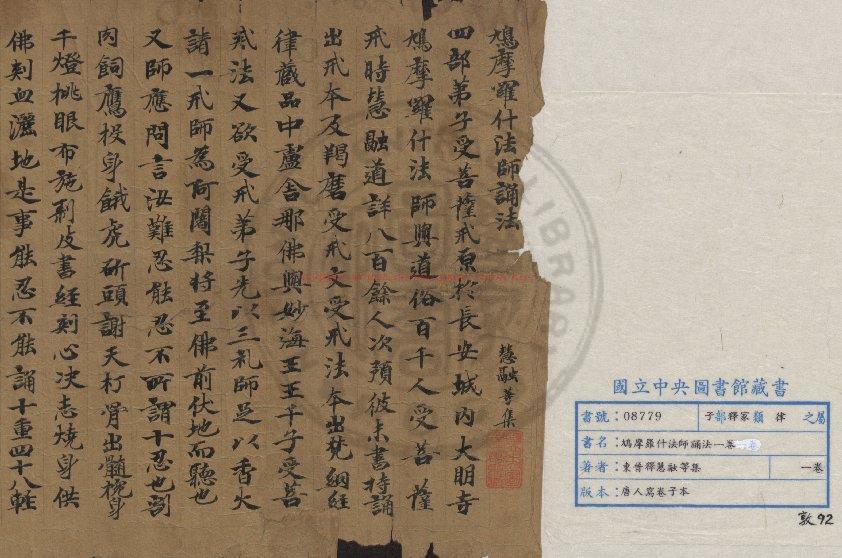 鳩摩羅什法師誦法
慧融等集
四部弟子受菩薩戒原於長安城內大明寺
鳩摩羅什法師與道俗百千人受菩薩
戒時慧融道詳八百餘人次預彼末書持誦
出戒本及羯磨受戒文受戒法本出梵網經
律藏品中盧舍那佛與妙海王王千子受菩
戒法又欲受戒弟子先以三礼師足以香火
請一戒師為阿闍梨將至佛前伏地而聽也
又師應問言汝難忍能忍不所謂十忍也割
肉飼鷹投身餓虎斫頭謝天打骨出髓挑身
千燈挑眼布施剥皮書經刻心决志燒身供
佛刺血灑地是事能忍不能誦十重四十八軽
國立中央圖書館藏書
書號：08779 子部釋家類 律 之屬
書名：鳩摩羅什法師誦法一卷
著者：東晉釋慧融等集 一卷
版本：唐人寫卷子本
敦92